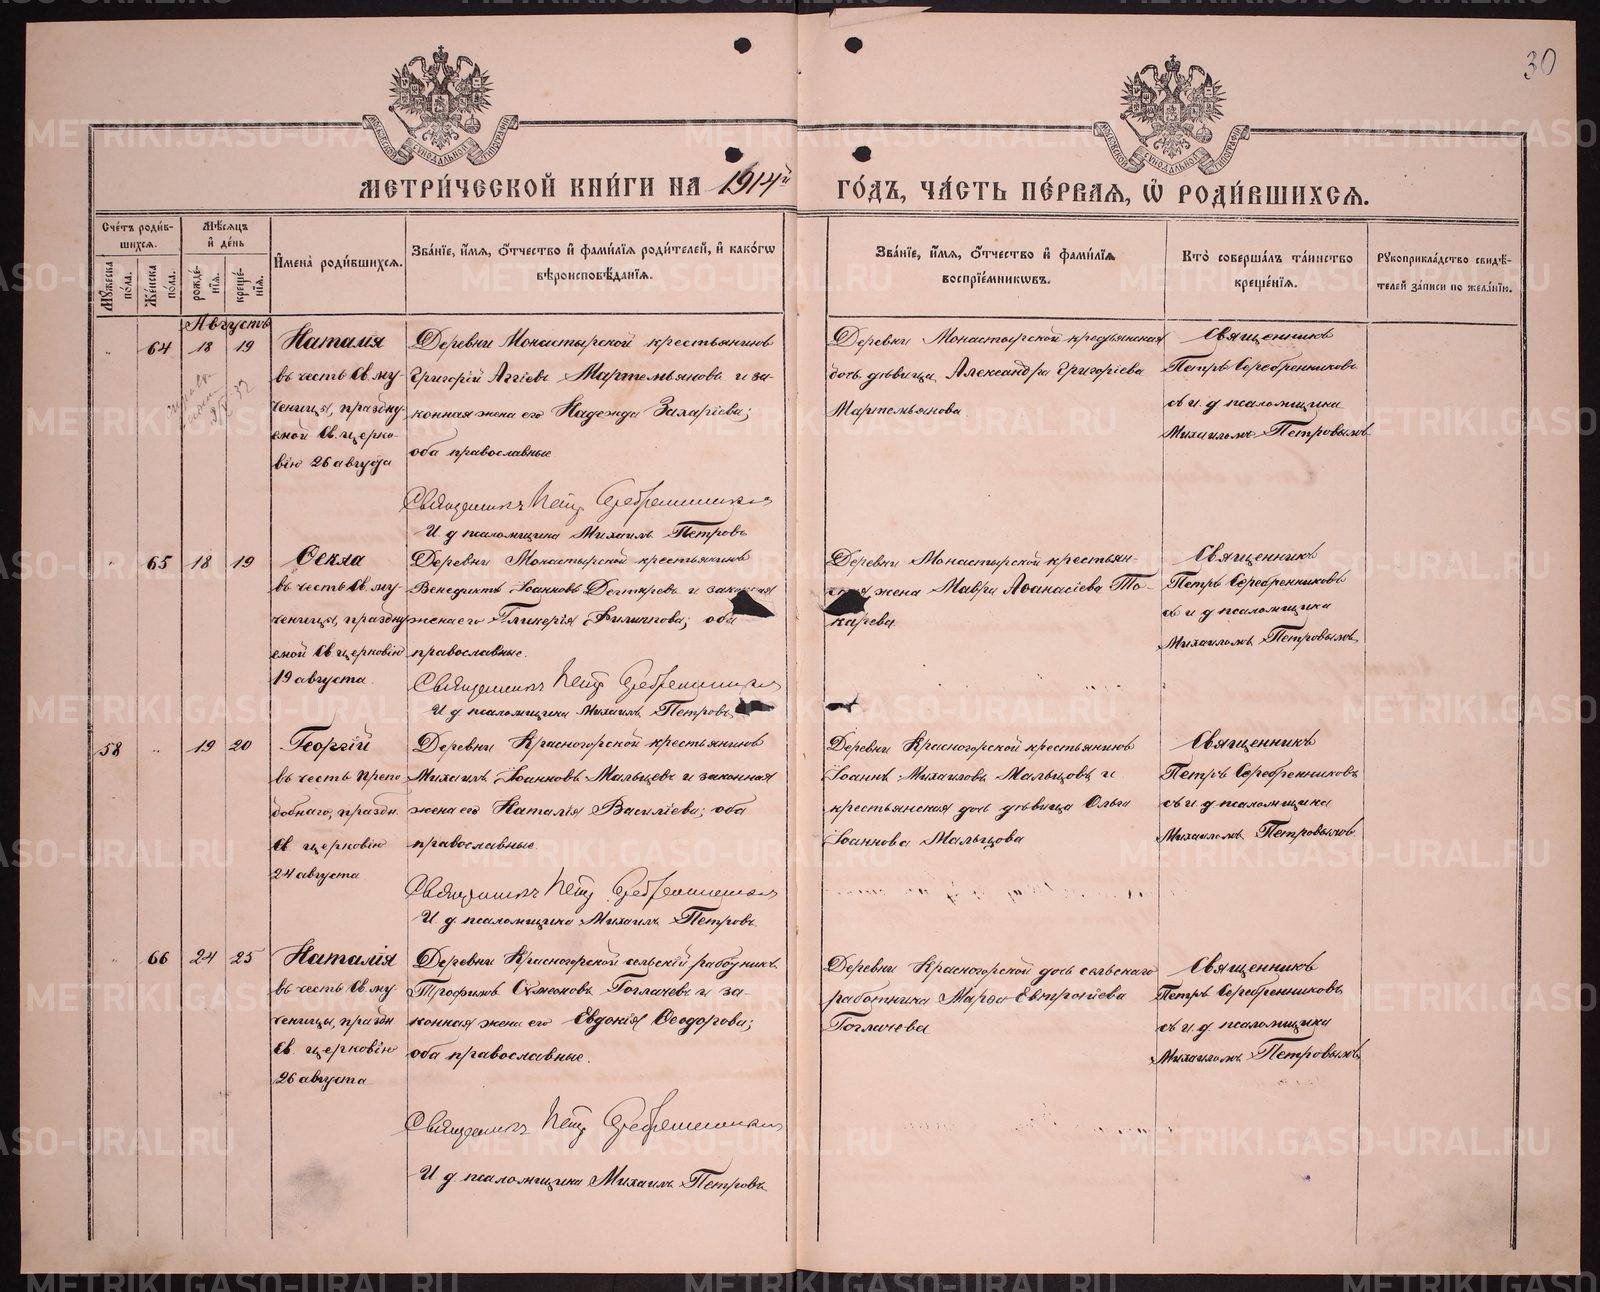 30
МЕТРИ́ЧЕСКОЙ КНИ́ГИ НА 1914й ГО́ДЪ, ЧА́СТЬ ПЕ́РВАЯ, Ѽ РОДИ́ВШИХСЯ.
Сче́тъ роди́в-
шихся.
Мѣ́сяцъ
и҆ де́нь
Мꙋ́жеска
по́ла.
Же́нска
по́ла.
рожде́-
нїя.
креще́-
нїя.
И҆мена̀ роди́вшихся.
Зва́нїе, и҆́мя, ѻ҆́тчество и҆ фами́лїя роди́телей, и҆ како́гѡ
вѣроисповѣ́данїя.
Зва́нїе, и҆́мя, ѻ҆́тчество и҆ фами́лїя
воспрїе́мникѡвъ.
Кто̀ соверша́лъ та́инство
креще́нїя.
Рꙋкоприкла́дство свидѣ́-
телей за́писи по жела́нїю.
Августъ
64 18 19
Наталия
въ честь Св. му-
ченицы, праздну-
емой Св. церко-
вію 26 августа
Деревни Монастырской крестьянинъ
Григорій Аггіевъ Мартемьяновъ и за-
конная жена его Надежда Захаріева;
оба православные
Священникъ Петръ Серебренниковъ
И. д. псаломщика Михаилъ Петровъ
Деревни Монастырской крестьянская
дочь дѣвица Александра Григоріева
Мартемьянова
Священникъ
Петръ Серебренниковъ
съ и. д. псаломщика
Михаиломъ Петровымъ
65 18 19
Ѳекла
въ честь Св. му-
ченицы, праздну
емой Св. церковію
19 августа
Деревни Монастырской крестьянинъ
Венедиктъ Іоанновъ Дегтяревъ и законная
жена его Гликерія Филиппова; оба
православные.
Священникъ Петръ Серебренниковъ
И. д. псаломщика Михаилъ Петровъ
Деревни Монастырской крестьян-
жена Мавра Аѳанасіева То-
карева
Священникъ
Петръ Серебренниковъ
съ и. д. псаломщика
Михаиломъ Петровымъ
58 19 20
Георгій
въ честь препо
добнаго, праздн.
Св. церковію
24 августа
Деревни Красногорской крестьянинъ
Михаилъ Іоанновъ Мальцевъ и законная
жена его Наталія Василіева; оба
православные
Священникъ Петръ Серебренниковъ
И. д. псаломщика Михаилъ Петровъ
Деревни Красногорской крестьянинъ
Іоаннъ Михаиловъ Мальцовъ и
крестьянская дочь дѣвица Ольга
Іоаннова Мальцова
Священникъ
Петръ Серебренниковъ
съ и. д. псаломщика
Михаиломъ Петровымъ
66 24 25
Наталія
въ честь Св. му
ченицы, праздн
Св. церковію
26 августа
Деревни Красногорской сельскій работникъ
Трофимъ Симеоновъ Гоглачевъ и за-
конная жена его Евдокія Ѳеодорова;
оба православные.
Священникъ Петръ Серебренниковъ
И. д. псаломщика Михаилъ Петровъ
Деревни Красногорской дочь сельскаго
работника Марѳа Евтропіева
Гоглачева
Священникъ
Петръ Серебренниковъ
съ и. д. псаломщика
Михаиломъ Петровымъ
METRIKI.GASO-URAL.RU